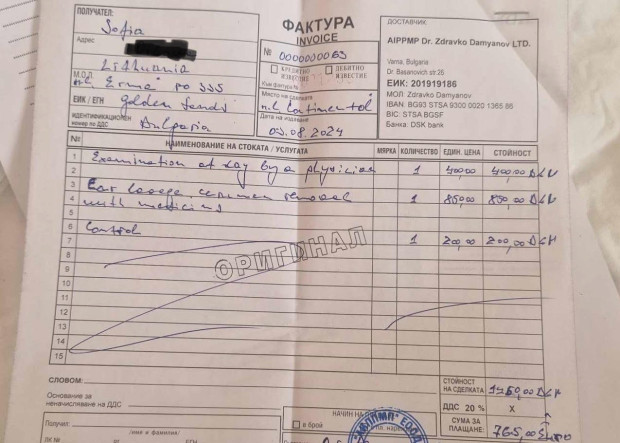 ПОЛУЧАТЕЛ:
Sofia
Адрес
Lithuania
М.О.Л.
ЕИК / ЕГН
Golden Sands
ИДЕНТИФИКАЦИОНЕН
номер по ДДС
Bulgaria
ФАКТУРА
INVOICE
№ 0000000063
КРЕДИТНО ИЗВЕСТИЕ
ДЕБИТНО ИЗВЕСТИЕ
Към фактура №
Място на сделката
Дата на издаване
03.08.2024
ДОСТАВЧИК:
AIPPMP Dr. Zdravko Damyanov LTD.
Varna, Bulgaria
Dr. Basanovich str.26
ЕИК: 201919186
МОЛ: Zdravko Damyanov
IBAN: BG93 STSA 9300 0020 1365 86
BIC: STSA BGSF
Банка: DSK bank
№ НАИМЕНОВАНИЕ НА СТОКАТА / УСЛУГАТА МЯРКА КОЛИЧЕСТВО ЕДИН. ЦЕНА СТОЙНОСТ
1
2 Examination at day by a physician 1 400,00 400,00
3
4 with medicins 1 850,00 850,00
5
6 Control
7 1 200,00 200,00
8
9
10
11
12
13
14
15
ОРИГИНАЛ
СЛОВОМ:
СТОЙНОСТ НА СДЕЛКАТА 1450,00
Основание за
неначисляване на ДДС
ДДС 20 % X
НАЧИН НА
в брой
СУМА ЗА ПЛАЩАНЕ: 765,00
Получил:
/име и фамилия/